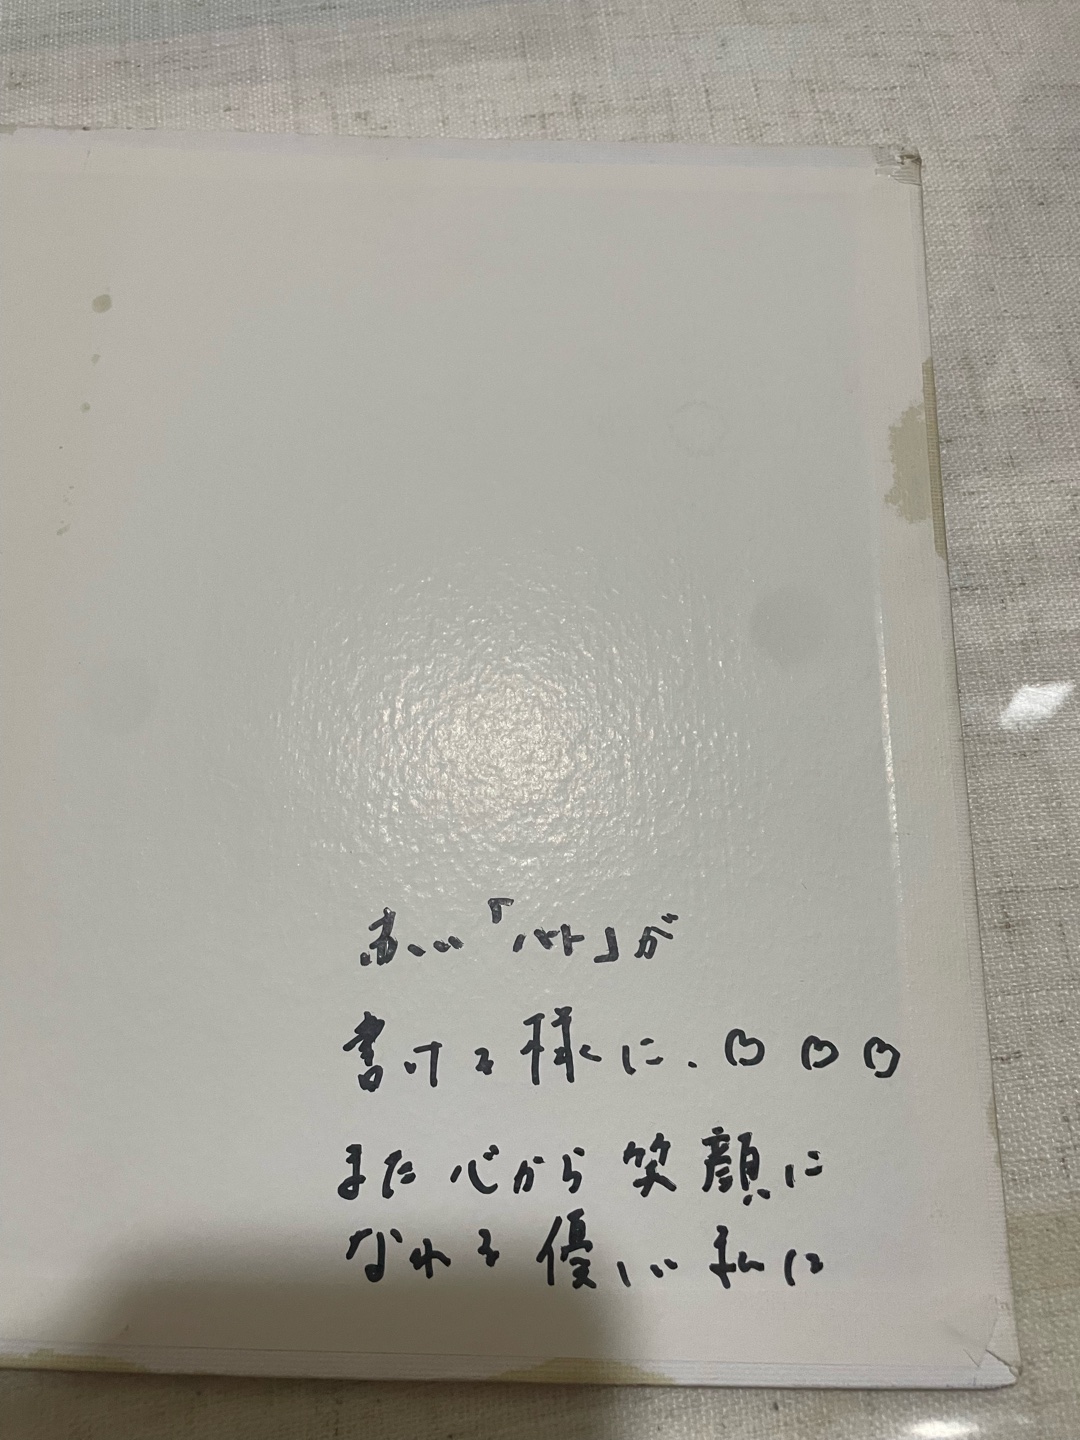 赤い「ハート」が
書ける様に.♡♡♡
また心から笑顔に
なれる優しい私に